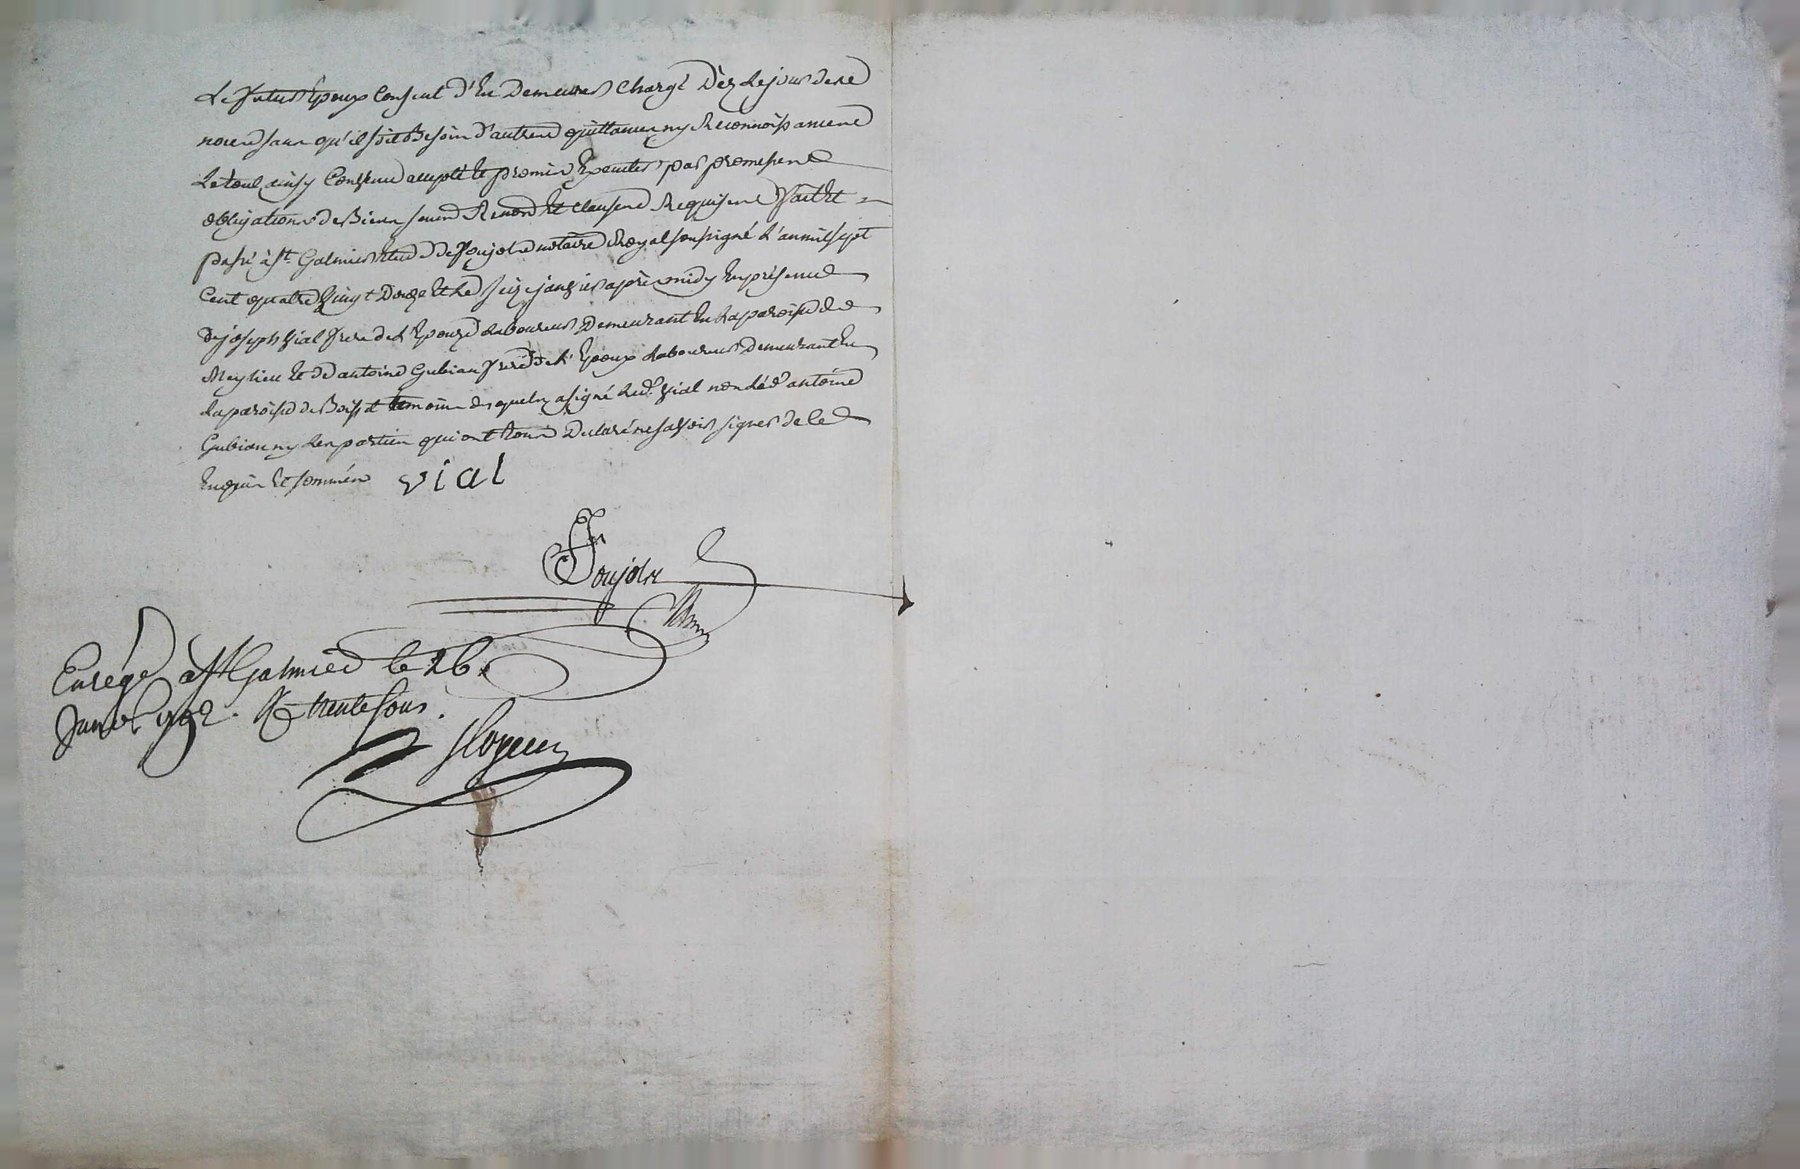 Le futur Epoux Consent d'En Demeurer Chargé Dèz Le jour de ses
noces sans qu'il soit Besoin d'autres quittances ny Reconnoissances
Le tout ainsy Convenu accepté et promis Executer par promesses
obligations de Biens soumd Renond Et clauses Requises fait Et
passé à St. Galmier Etude de Poujols notaire Royal soussigné L'an mil sept
Cent quatre Vingt Douze Et Le seize janvier après midy En présence
De joseph Vial frere de L'Epouse Laboureur Demeurant En La paroisse de
Meylieu Et de antoine Gubian frere de L'Epoux Laboureur Demeurant En
La paroisse de Boisset temoins desquels a signé Led. Vial non Led. antoine
Gubian ny Les parties qui ont tous Déclaré ne savoir signer de ce
Enquis Et sommés vial
Poujols
Enrégé à St Galmier le 26.
Janvr. 1792. R trente sous.